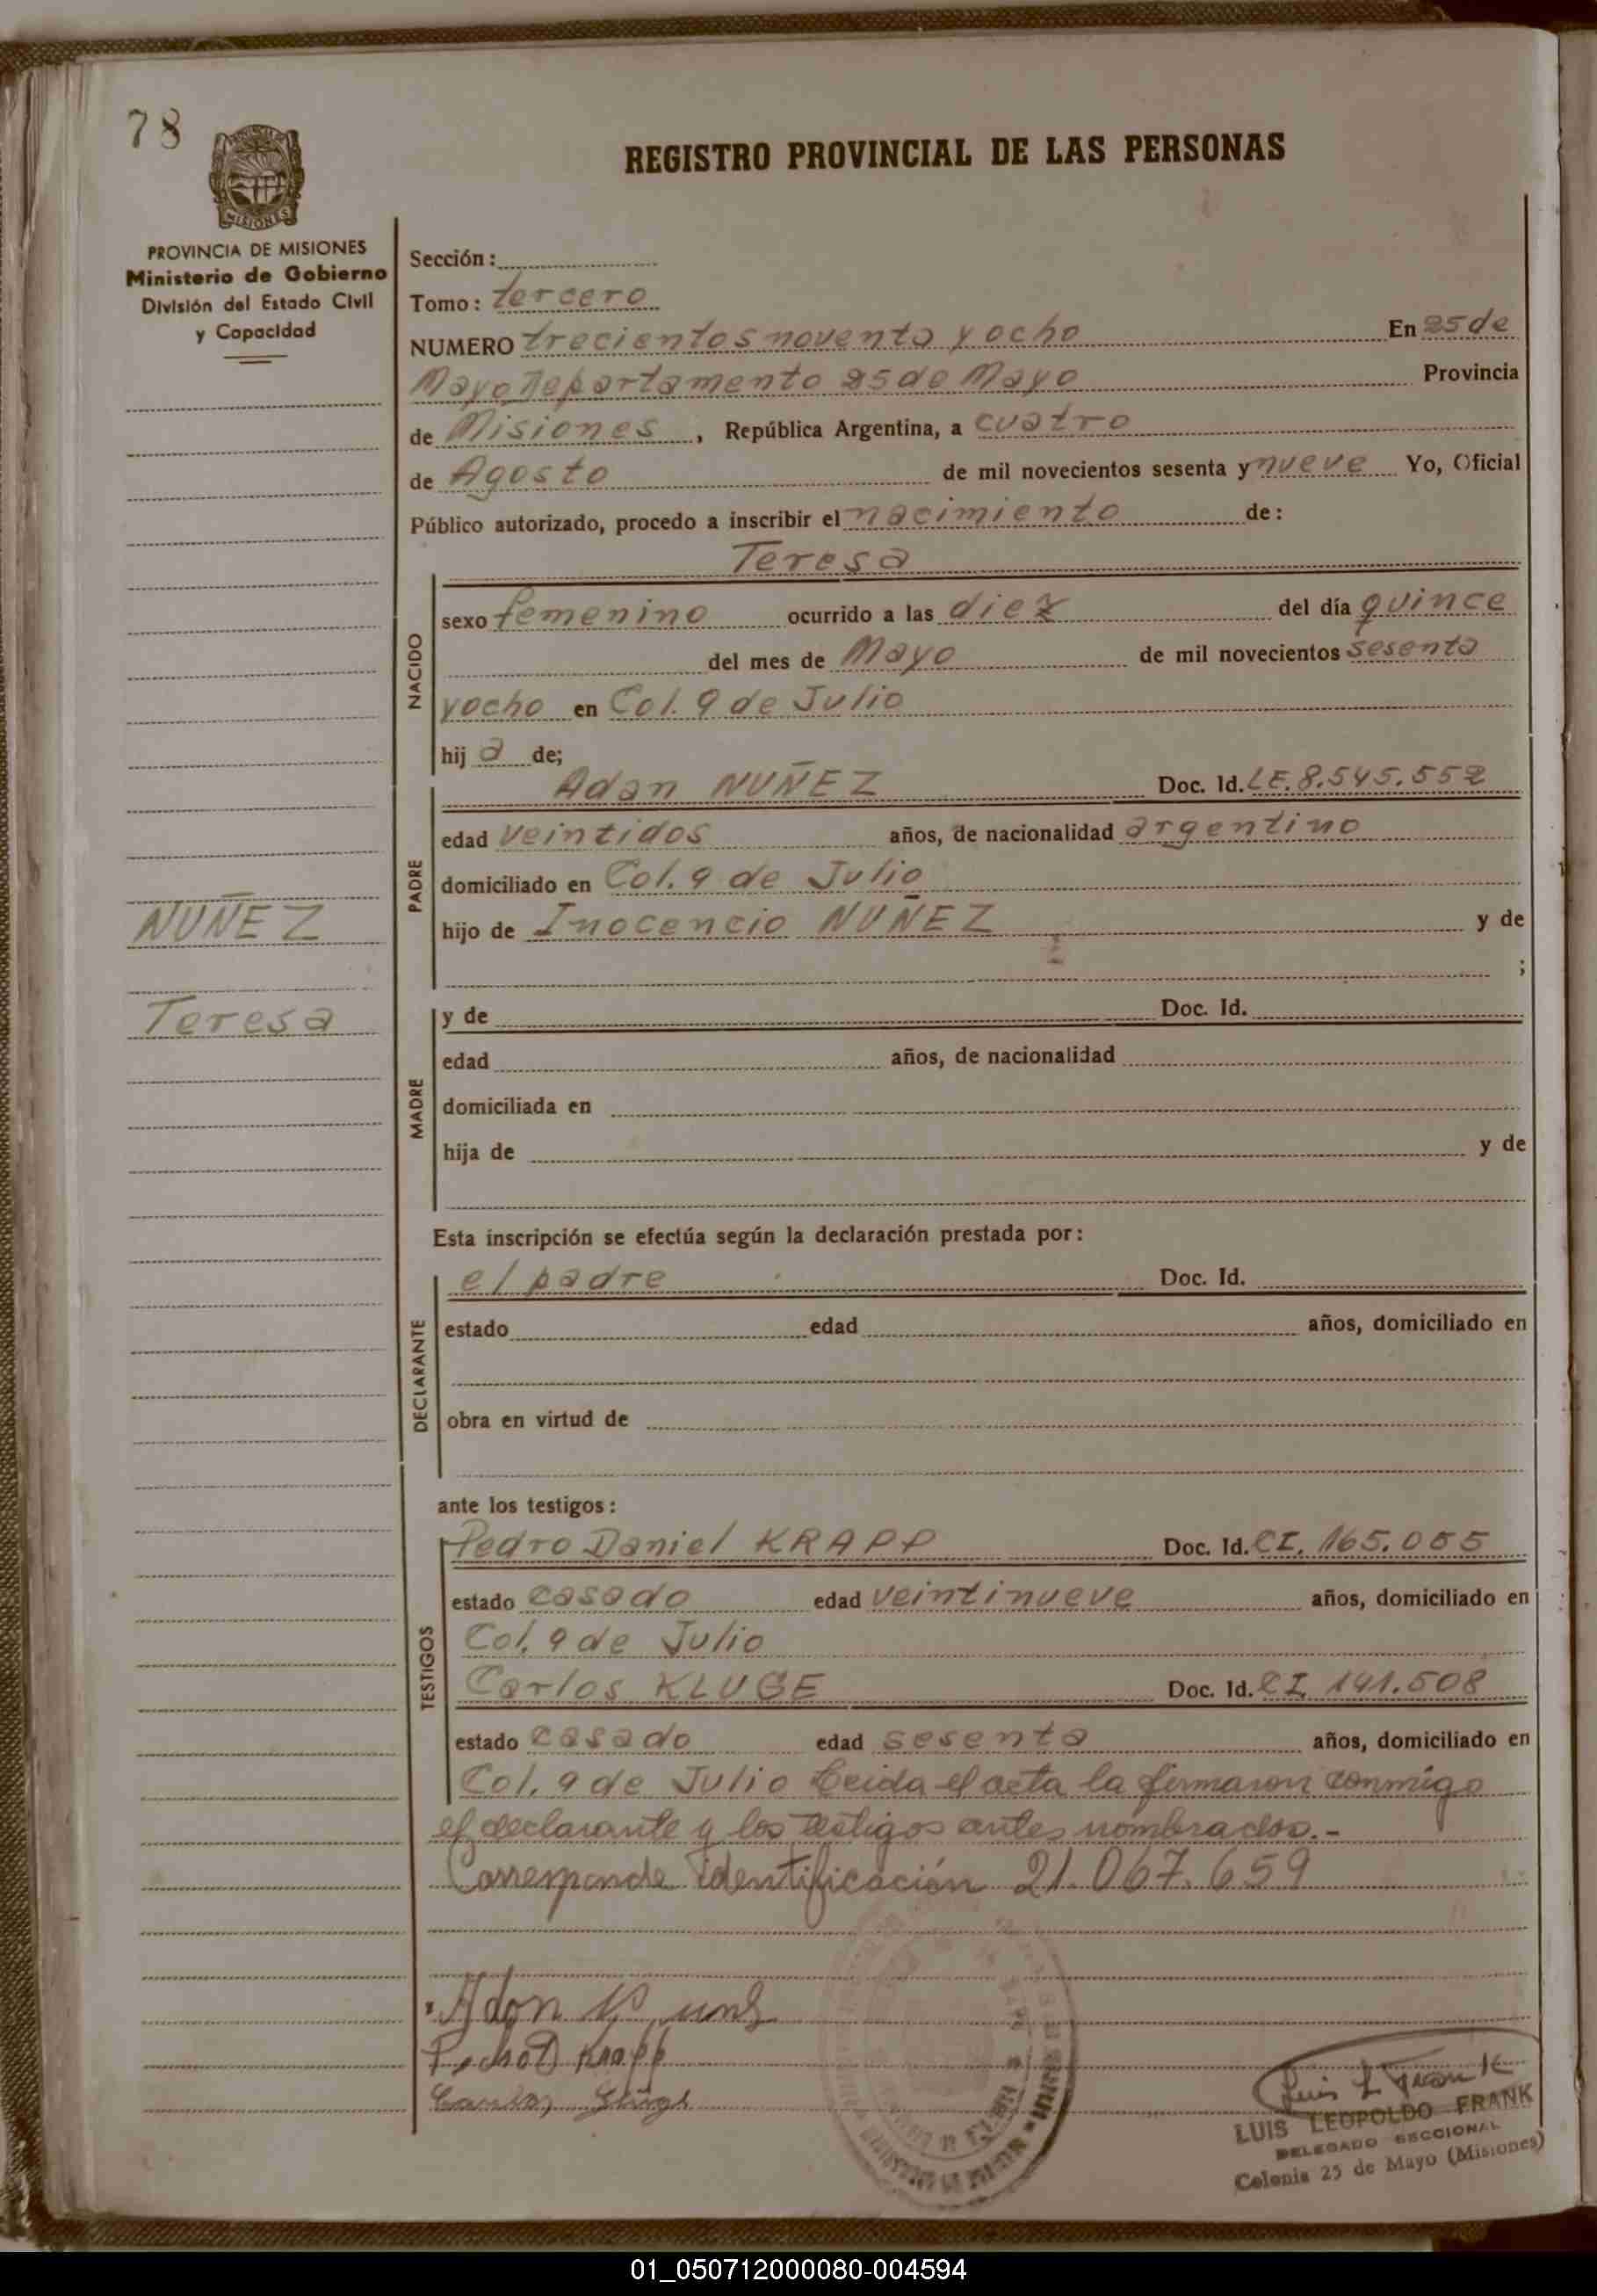 78
REGISTRO PROVINCIAL DE LAS PERSONAS
MISIONES
PROVINCIA DE MISIONES
Ministerio de Gobierno
División del Estado Civil
y Capacidad
Sección:
Tomo: tercero
NUMERO trecientos noventa y ocho En 25 de
Mayo Departamento 25 de Mayo Provincia
de Misiones, República Argentina, a cuatro
de Agosto de mil novecientos sesenta y nueve Yo, Oficial
Público autorizado, procedo a inscribir el nacimiento de:
Teresa
NACIDO
sexo femenino ocurrido a las diez del día quince
del mes de Mayo de mil novecientos sesenta
y ocho en Col. 9 de Julio
hij a de;
PADRE
Adan NUÑEZ Doc. Id. LE. 8.545.552
edad veintidos años, de nacionalidad argentino
domiciliado en Col. 9 de Julio
hijo de Inocencio NUÑEZ y de
;
NUÑEZ
Teresa
MADRE
y de Doc. Id.
edad años, de nacionalidad
domiciliada en
hija de y de
Esta inscripción se efectúa según la declaración prestada por:
DECLARANTE
el padre Doc. Id.
estado edad años, domiciliado en
obra en virtud de
ante los testigos:
TESTIGOS
Pedro Daniel KRAPP Doc. Id. CI. 165.055
estado casado edad veintinueve años, domiciliado en
Col. 9 de Julio
Carlos KLUGE Doc. Id. CI. 141.508
estado casado edad sesenta años, domiciliado en
Col. 9 de Julio Leida el acta la firmaron conmigo
el declarante y los testigos antes nombrados.-
Corresponde identificación 21.067.659
Adan
Pedro D Krapp
Carlos
Luis L Frank
LUIS LEOPOLDO FRANK
DELEGADO SECCIONAL
Colonia 25 de Mayo (Misiones)
01_050712000080-004594